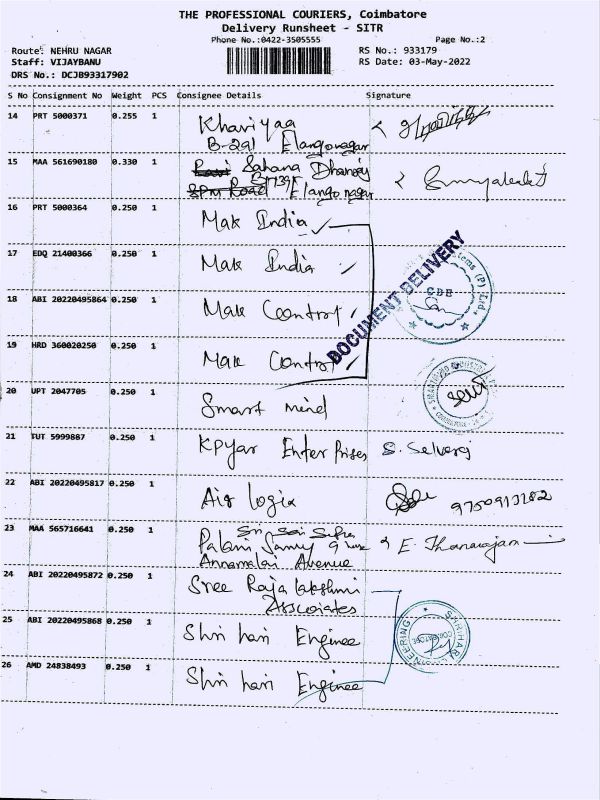 THE PROFESSIONAL COURIERS, Coimbatore
Delivery Runsheet - SITR
Phone No.:0422-3505555
Page No.:2
Route: NEHRU NAGAR
RS No.: 933179
Staff: VIJAYBANU
RS Date: 03-May-2022
DRS No.: DCJB93317902
S No Consignment No Weight PCS Consignee Details Signature
14 PRT 5000371 0.255 1 Khaviyaa
B-291 Elangonagar
15 MAA 561690180 0.330 1 Sahana Dhanraj
Elango nagar
16 PRT 5000364 0.250 1 Mak India
17 EDQ 21400366 0.250 1 Mak India
18 ABI 20220495864 0.250 1 Mak Control
19 HRD 360020250 0.250 1 Mak Control
DOCUMENT DELIVERY
CBE
20 UPT 2047705 0.250 1 Smart mind
21 TUT 5999887 0.250 1 Kpyar Enterprises S. Selvaraj
22 ABI 20220495817 0.250 1 Air logix 9750913282
23 MAA 565716641 0.250 1 Sri Sai
Palani Samy E. Thanarajan
Annamalai Avenue
24 ABI 20220495872 0.250 1 Sree Rajalakshmi
Associates
25 ABI 20220495868 0.250 1 Shri hari Enginee
26 AMD 24838493 0.250 1 Shri hari Enginee